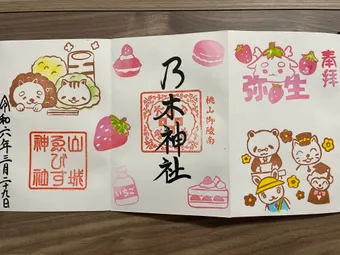 奉拝
弥生
乃木神社
桃山御陵南
いちご
山城
ゑびす
神社
令和六年三月二十九日